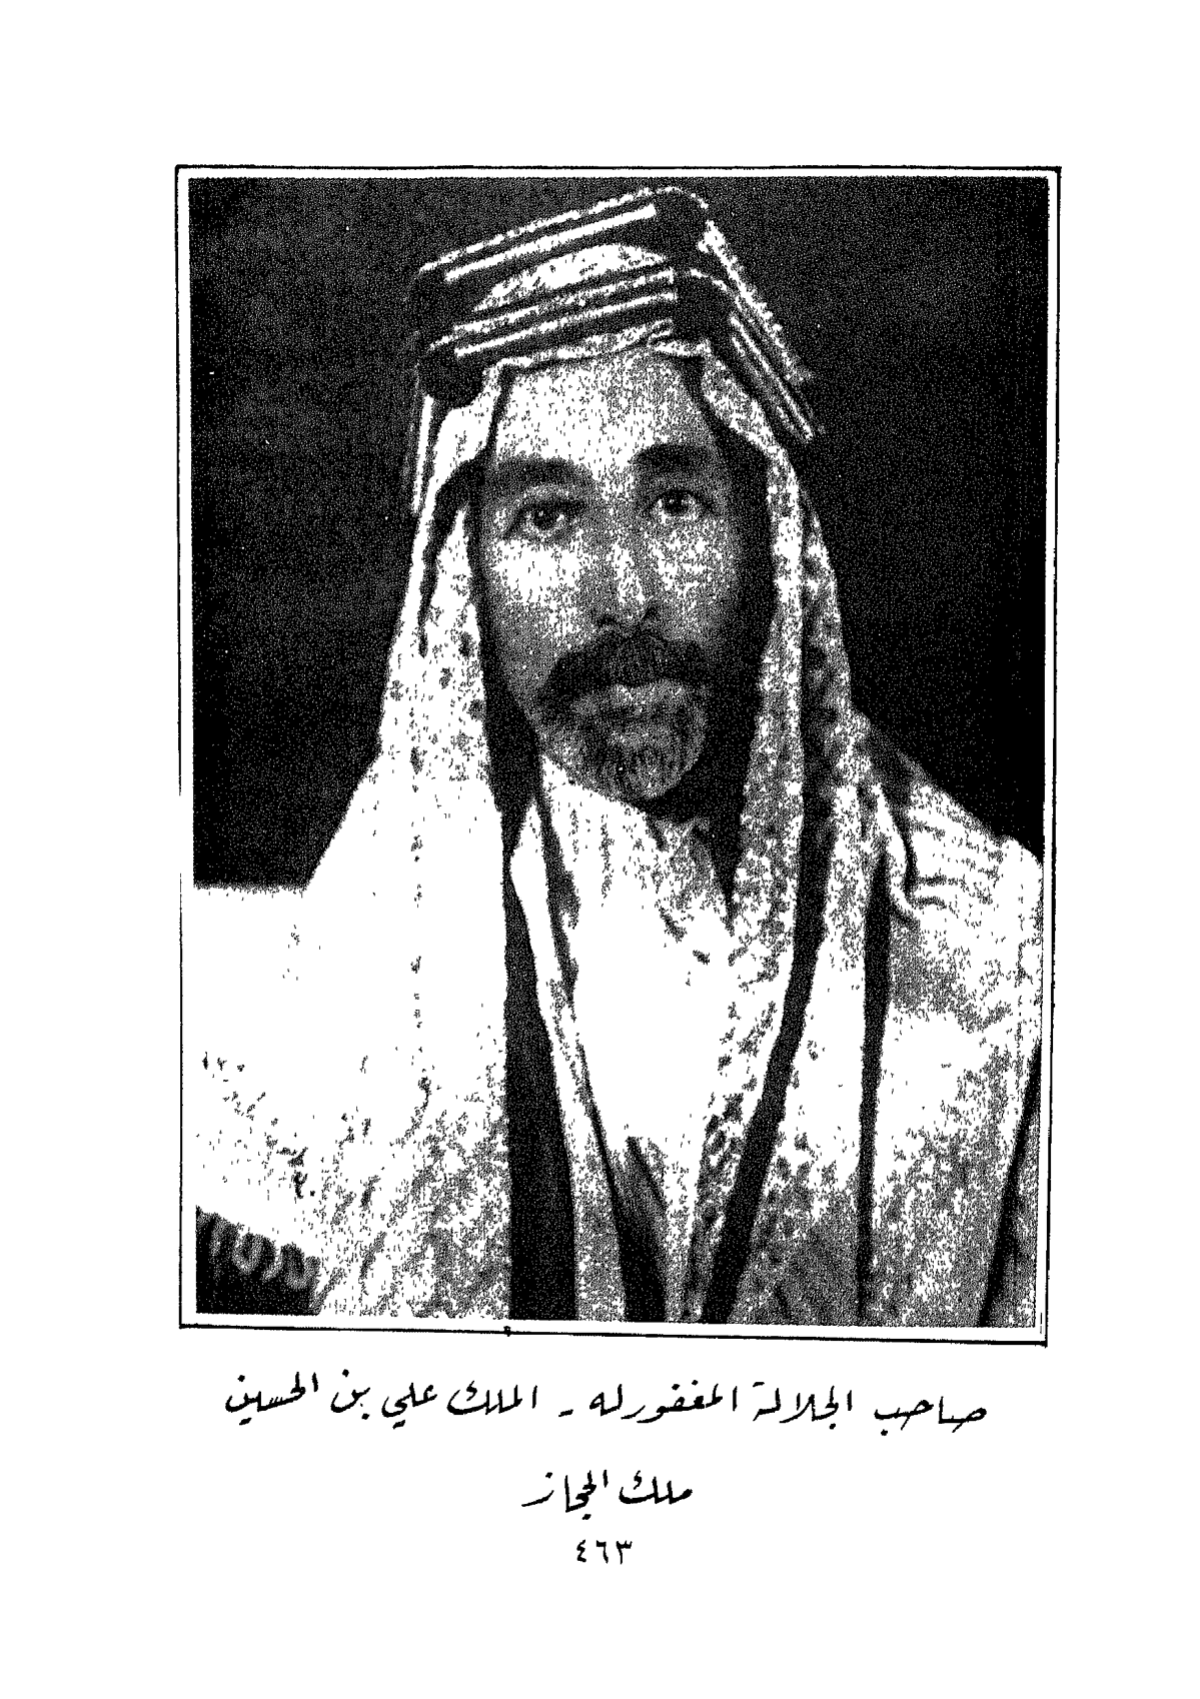 صاحب الجلالة المغفور له - الملك علي بن الحسين
ملك الحجاز
٤٦٣